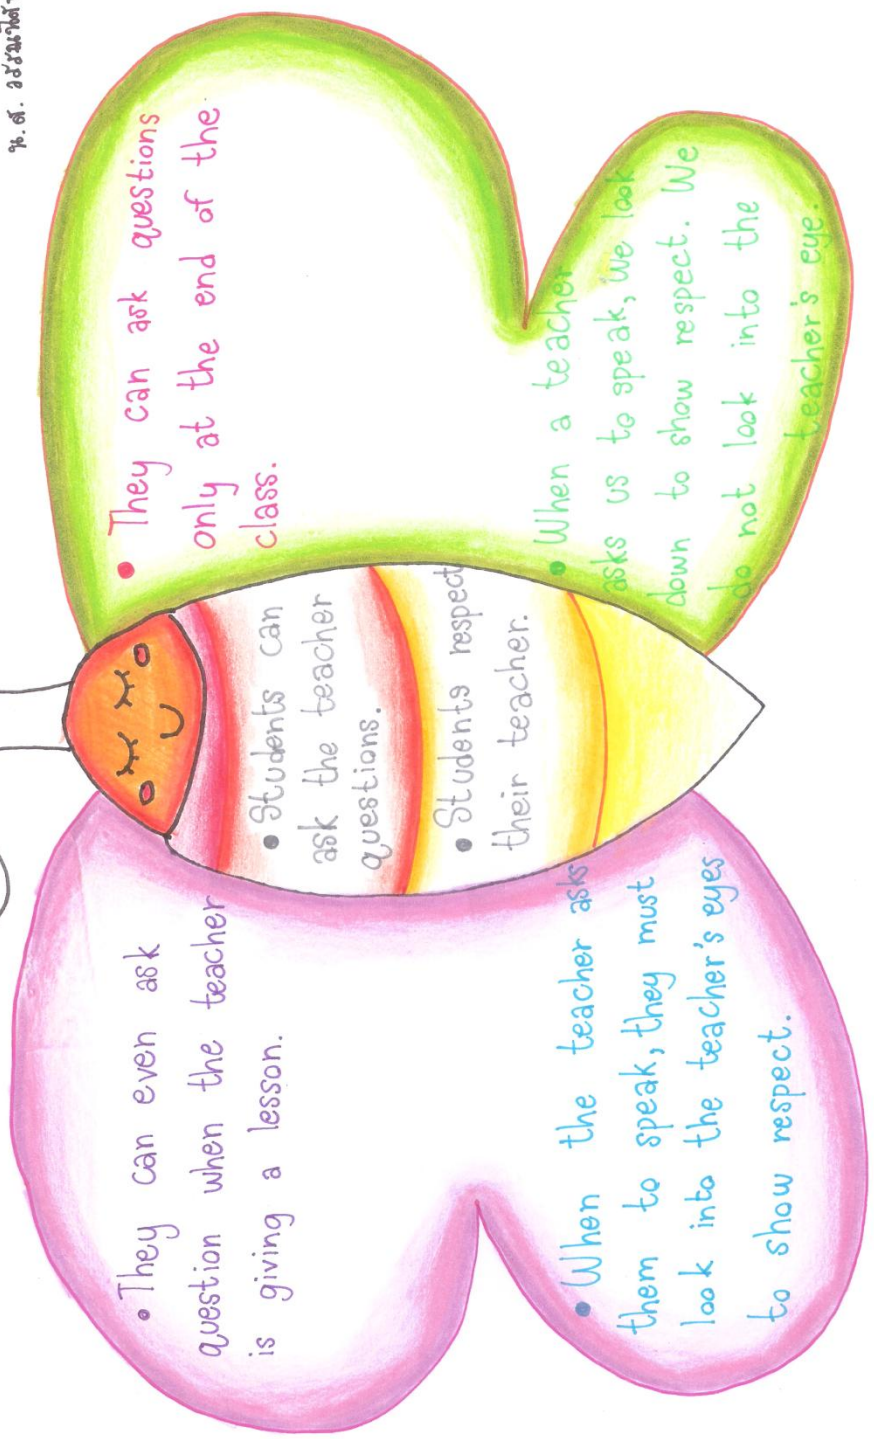 น.ส.
• They can even ask
question when the teacher
is giving a lesson.
• When the teacher asks
them to speak, they must
look into the teacher's eyes
to show respect.
• Students can
ask the teacher
questions.
• Students respect
their teacher.
• They can ask questions
only at the end of the
class.
• When a teacher
asks us to speak, we look
down to show respect. We
do not look into the
teacher's eye.